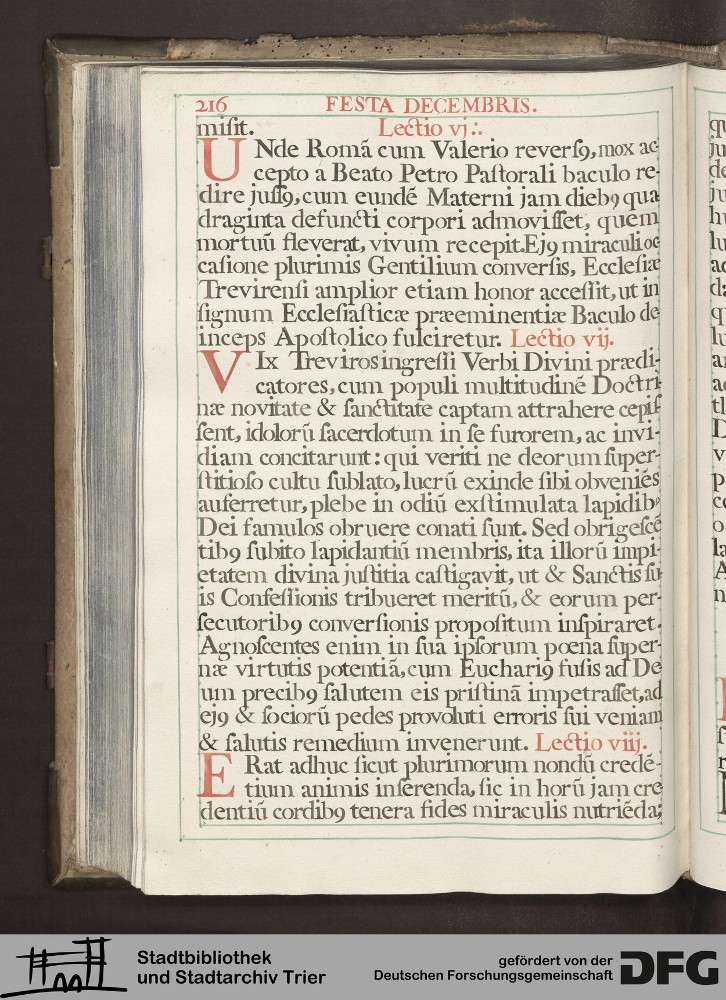 216 FESTA DECEMBRIS.
miſit. Lectio vj ∴.
UNde Romã cum Valerio reverſꝯ, mox ac-
cepto à Beato Petro Paſtorali baculo re-
dire juſſꝯ, cum eundẽ Materni jam diebꝯ qua
draginta defuncti corpori admoviſſet, quem
mortuũ fleverat, vivum recepit. Ejꝯ miraculi oc
caſione plurimis Gentilium converſis, Eccleſiæ
Trevirenſi amplior etiam honor acceſſit, ut in
ſignum Eccleſiaſticæ præeminentiæ Baculo de
inceps Apoſtolico fulciretur. Lectio vij.
VIx Treviros ingreſſi Verbi Divini prædi-
catores, cum populi multitudinẽ Doctri-
næ novitate & ſanctitate captam attrahere cepiſ
ſent, idolorũ ſacerdotum in ſe furorem, ac invi-
diam concitarunt: qui veriti ne deorum ſuper-
ſtitioſo cultu ſublato, lucrũ exinde ſibi obveniẽs
auferretur, plebe in odiũ exſtimulata lapidibꝯ
Dei famulos obruere conati ſunt. Sed obrigeſcẽ
tibꝯ ſubito lapidantiũ membris, ita illorũ impi-
etatem divina juſtitia caſtigavit, ut & Sanctis ſu-
is Confeſſionis tribueret meritũ, & eorum per-
ſecutoribꝯ converſionis propoſitum inſpiraret.
Agnoſcentes enim in ſua ipſorum poena ſuper-
næ virtutis potentiã, cum Euchariꝯ fuſis ad De
um precibꝯ ſalutem eis priſtinã impetraſſet, ad
ejꝯ & ſociorũ pedes provoluti erroris ſui veniam
& ſalutis remedium invenerunt. Lectio viij.
ERat adhuc ſicut plurimorum nondũ credẽ-
tium animis inſerenda, ſic in horũ jam cre
dentiũ cordibꝯ tenera fides miraculis nutriẽda;
Stadtbibliothek
und Stadtarchiv Trier
gefördert von der
Deutschen Forschungsgemeinschaft
DFG